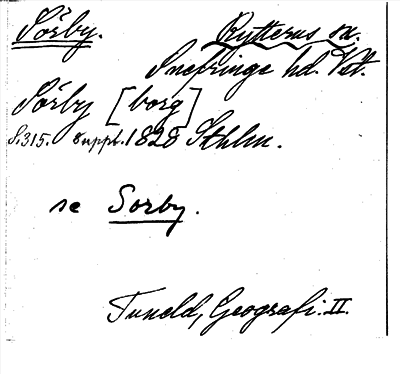 Sörby. Rytterns sn.
Snefringe hd. Vstt.
Sörby [borg]
S. 315. uppl. 1828 Sthlm.
se Sorby.
Tuneld, Geografi. II.